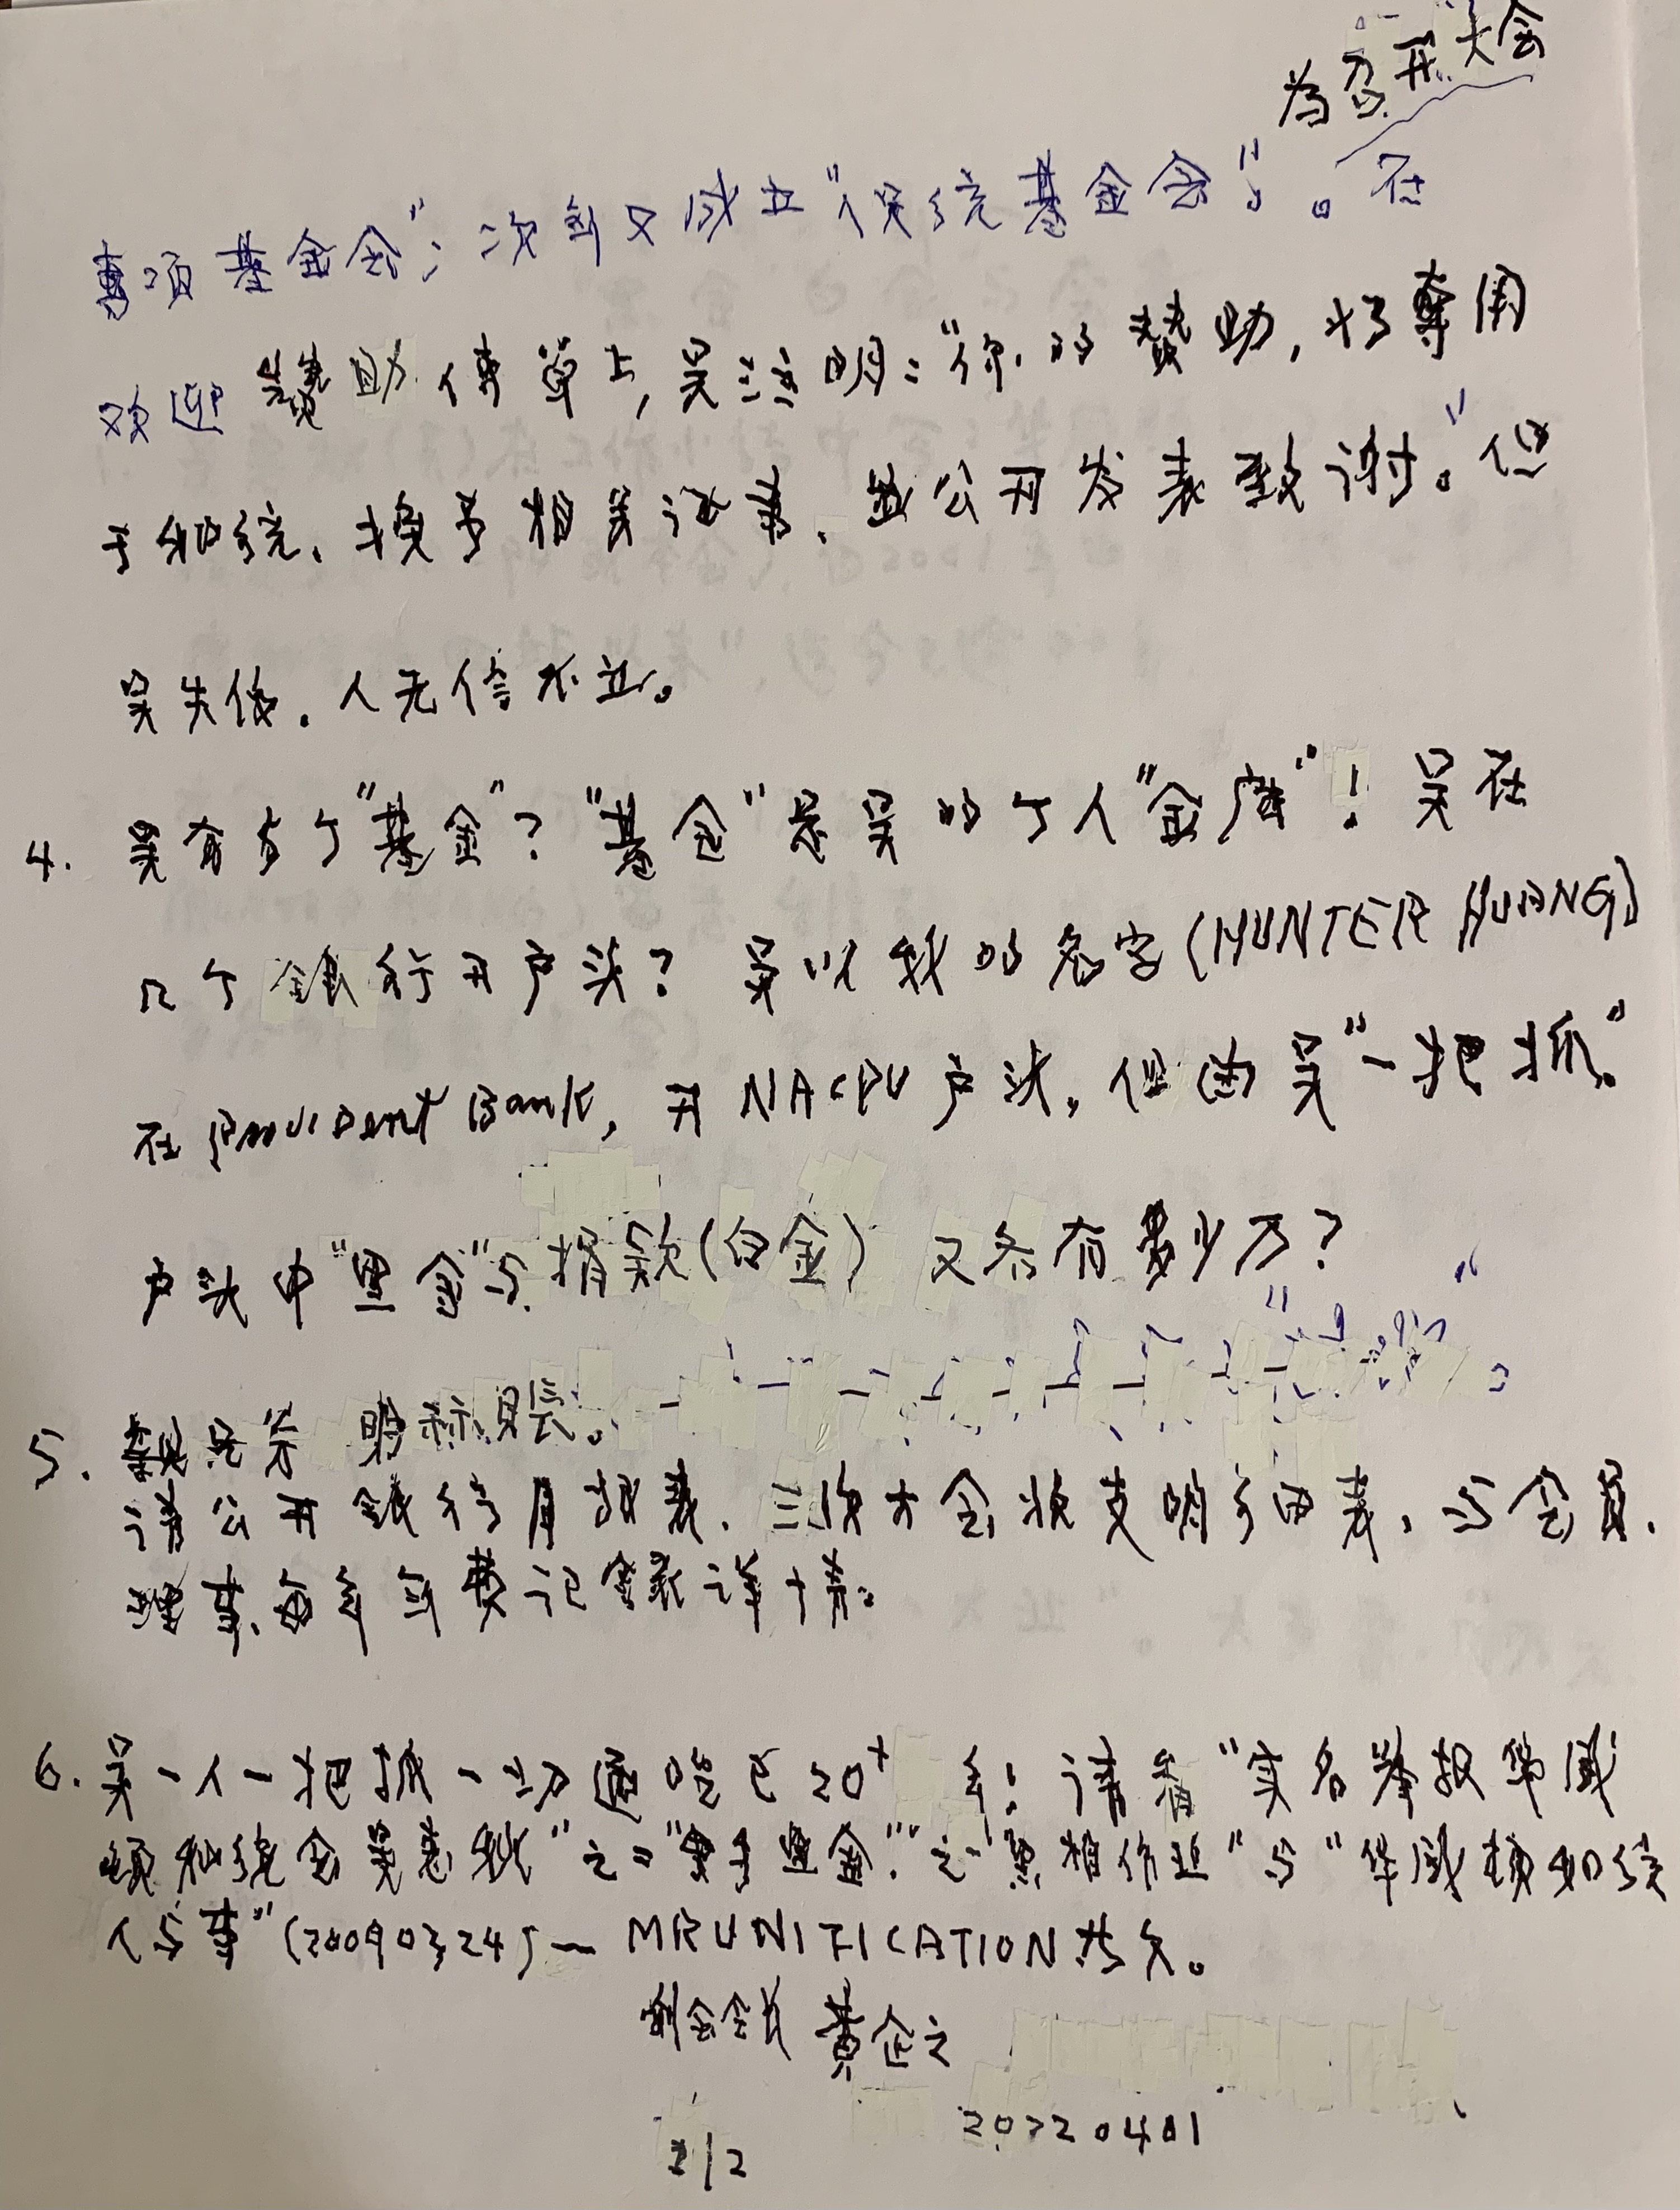 为召开大会
专项基金会"；次年又成立"促统基金会"！。在
欢迎贊助传单上，吴注明："你的贊助，将專用
于和统、换予相关证书、並公开发表致谢。"但
吴失信。人无信不立。
4. 吴有多个"基金"？"基金"是吴的个人"金库"！吴在
几个銀行开户头？吴以我的名字（HUNTER HUANG）
在 Provident Bank，开 NACPU 户头，但由吴"一把抓"。
户头中"黑金"与捐款（白金）又各有多少万？
5. 魏 明称账。
请公开銀行月报表、三次大会收支明细表，与会員、
理事每年年费记錄详情。
6. 吴一人一把抓一切通吃已20+年！请看"实名举报华盛
顿和统会吴惠秋"之="黑手黑金"" "黑箱作业"与"华盛顿和统
人与事"（20090324）— MRUNIFICATION 共久。
副会长 黄企之
20220401
2/2